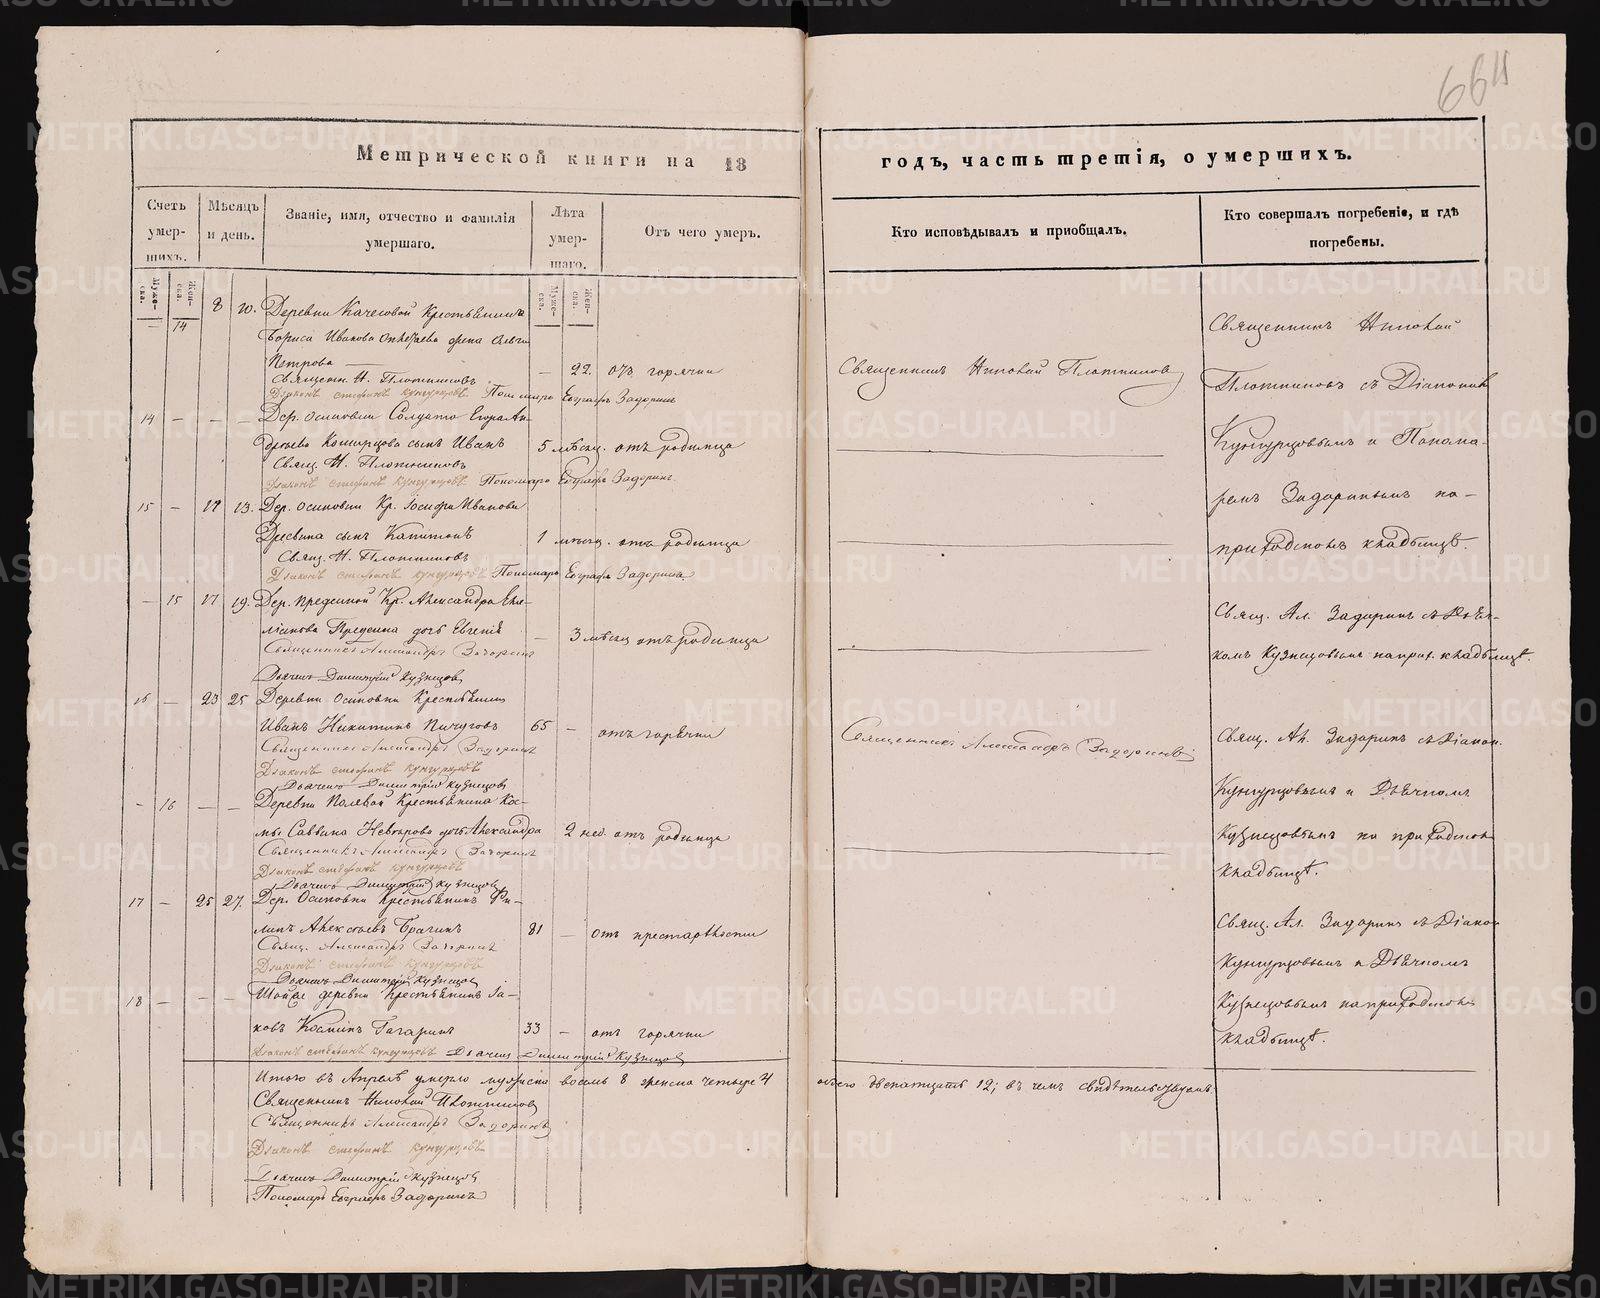 664
Метрической книги на 18
годъ, часть третія, о умершихъ.
Счетъ умер-шихъ.
Мѣсяцъ и день.
Званіе, имя, отчество и фамилія умершаго.
Лѣта умер-шаго.
Отъ чего умеръ.
Кто исповѣдывалъ и пріобщалъ.
Кто совершалъ погребеніе, и гдѣ погребены.
Муже-ска.
Жен-ска.
Муже-ска.
Жен-ска.
— 14 8 10. Деревни Крестьянина
Бориса Иванова жена
Петрова — 22. отъ горячки
Священникъ Николай Плотниковъ
Священникъ Николай
Плотниковъ съ Діакономъ
Кунгурцовымъ и Понома-
ремъ Задоринымъ на
приходскомъ кладбищѣ.
Священ. Н. Плотниковъ
Діаконъ Стефанъ Кунгурцовъ Пономарь Евграфъ Задоринъ
14 — — — Дер. Осиновки Солдата Егора
сынъ Иванъ 5 мѣсяц. отъ родимца
Свящ. Н. Плотниковъ
Діаконъ Стефанъ Кунгурцовъ Пономарь Евграфъ Задоринъ
15 — 13. Дер. Осиновки Кр. Іосифа Иванова
сынъ Капитонъ 1 мѣсяц. отъ родимца
Свящ. Н. Плотниковъ
Діаконъ Стефанъ Кунгурцовъ Пономарь Евграфъ Задоринъ
— 15 17 19. Дер. Кр. Александра
дочь Евгенія — 3 мѣсяц отъ родимца
Свящ. Ал. Задоринъ съ Дьяч-
комъ Кузнецовымъ на прих. кладбищѣ.
Священникъ Александръ Задоринъ
Дьячекъ Димитрій Кузнецовъ
16 — 23 25 Деревни Осиновки Крестьянинъ
Иванъ Никитинъ Пичуговъ 65 — отъ горячки
Священникъ Александръ Задоринъ
Свящ. Ал. Задоринъ съ Діакон.
Кунгурцовымъ и Дьячкомъ
Кузнецовымъ на приходском
кладбищѣ.
Священникъ Александръ Задоринъ
Діаконъ Стефанъ Кунгурцовъ
Дьячекъ Димитрій Кузнецовъ
— 16 — — Деревни Полевой Крестьянина Кос-
мы Саввина дочь Александра 2 нед. отъ родимца
Священникъ Александръ Задоринъ
Діаконъ Стефанъ Кунгурцовъ
Дьячекъ Димитрій Кузнецовъ
17 — 25 27. Дер. Осиновки Крестьянинъ Фи-
липъ Алексѣевъ Брагинъ 81 — отъ престарѣлости
Свящ. Ал. Задоринъ съ Діакон
Кунгурцовымъ и Дьячкомъ
Кузнецовымъ на приходском
кладбищѣ.
Свящ. Александръ Задоринъ
Діаконъ Стефанъ Кунгурцовъ
Дьячекъ Димитрій Кузнецовъ
18 — — — Той же деревни Крестьянинъ Іа-
ковъ Косминъ Гагаринъ 33 — отъ горячки
Діаконъ Стефанъ Кунгурцовъ Дьячекъ Димитрій Кузнецовъ
Итого въ Апрелѣ умерло мужеска восемь 8 женска четыре 4 всего двенатцать 12; въ чемъ свидѣтельствуемъ
Священникъ Николай Плотниковъ
Священникъ Александръ Задоринъ
Діаконъ Стефанъ Кунгурцовъ
Дьячекъ Димитрій Кузнецовъ
Пономарь Евграфъ Задоринъ
METRIKI.GASO-URAL.RU